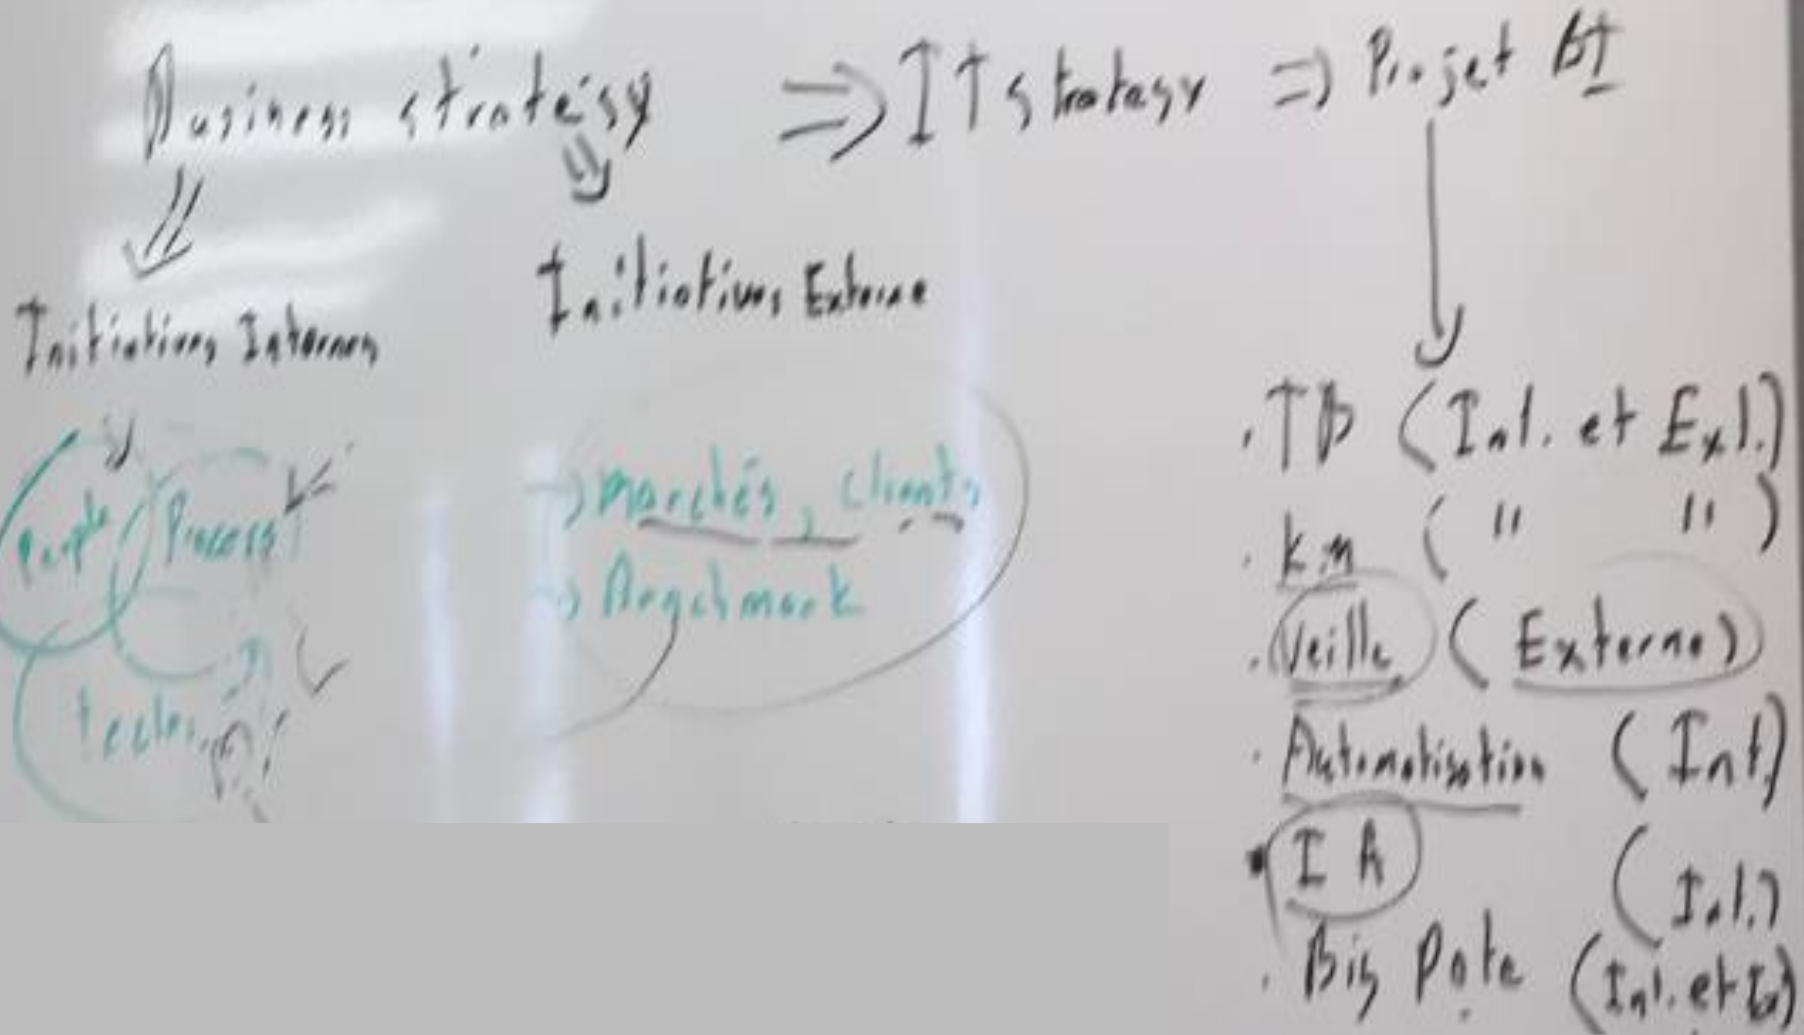 Business strategy => IT strategy => Projet BI
Initiatives Internes
Initiatives Externe
People
Process
techn
-> marchés, clients
-> Bengchmark
. TB (Int. et Ext.)
. KM ( " " )
. Veille (Externe)
. Automatisation (Int)
. IA (Int.)
. Big Data (Int. et Ex)